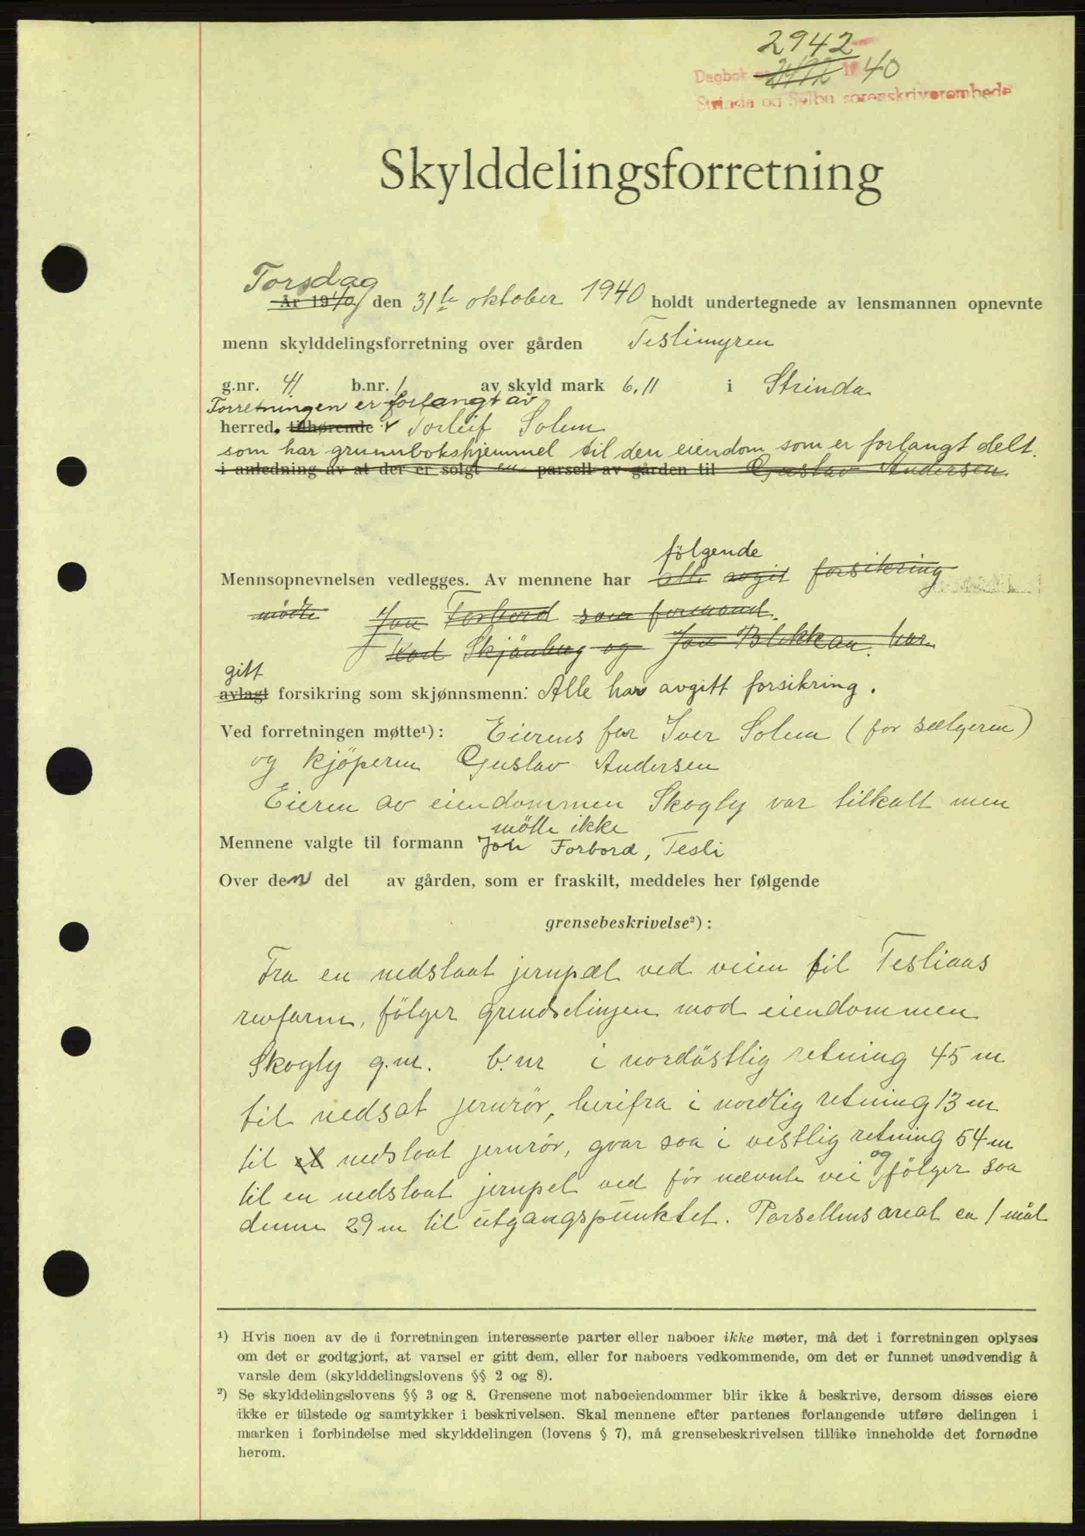 2942
Dagbok 2472 1940
Strinda og Selbu sorenskriverembede
Skylddelingsforretning
Torsdag
År 1940 den 31te oktober 1940 holdt undertegnede av lensmannen opnevnte
menn skylddelingsforretning over gården Teslimyren
g.nr. 41 b.nr. 1 av skyld mark 6,11 i Strinda
Forretningen er forlangt av
herred. tilhørende Torleif Solem
som har grunnbokshjemmel til den eiendom som er forlangt delt.
i anledning av at der er solgt en parsell av gården til Gustav Andersen.
følgende
Mennsopnevnelsen vedlegges. Av mennene har alle avgit forsikring
møtte Jon Forbord som formand.
Karl Skjånberg og Jon Blekkan. har
gitt
avlagt forsikring som skjønnsmenn: Alle har avgitt forsikring.
Ved forretningen møtte¹): Eierens far Iver Solem (for sælgeren)
og kjöperen Gustav Andersen
Eieren av eiendommen Skogly var tilkalt men
møtte ikke
Mennene valgte til formann Jon Forbord, Tesli
Over den del av gården, som er fraskilt, meddeles her følgende
grensebeskrivelse²):
Fra en nedslaat jernpæl ved veien til Tesliaas
revfarm, fölger grendselinjen mod eiendommen
Skogly g.nr. b.nr i nordöstlig retning 45 m
til nedsat jernrör, herifra i nordlig retning 13 m
til et nedslaat jernrör, gaar saa i vestlig retning 54 m
til en nedslaat jernpel ved för nævnte vei og fölger saa
denne 29 m til utgangspunktet. Parsellens areal ca 1 mål
¹) Hvis noen av de i forretningen interesserte parter eller naboer ikke møter, må det i forretningen oplyses
om det er godtgjort, at varsel er gitt dem, eller for naboers vedkommende, om det er funnet unødvendig å
varsle dem (skylddelingslovens §§ 2 og 8).
²) Se skylddelingslovens §§ 3 og 8. Grensene mot naboeiendommer blir ikke å beskrive, dersom disses eiere
ikke er tilstede og samtykker i beskrivelsen. Skal mennene efter partenes forlangende utføre delingen i
marken i forbindelse med skylddelingen (lovens § 7), må grensebeskrivelsen tillike inneholde det fornødne
herom.